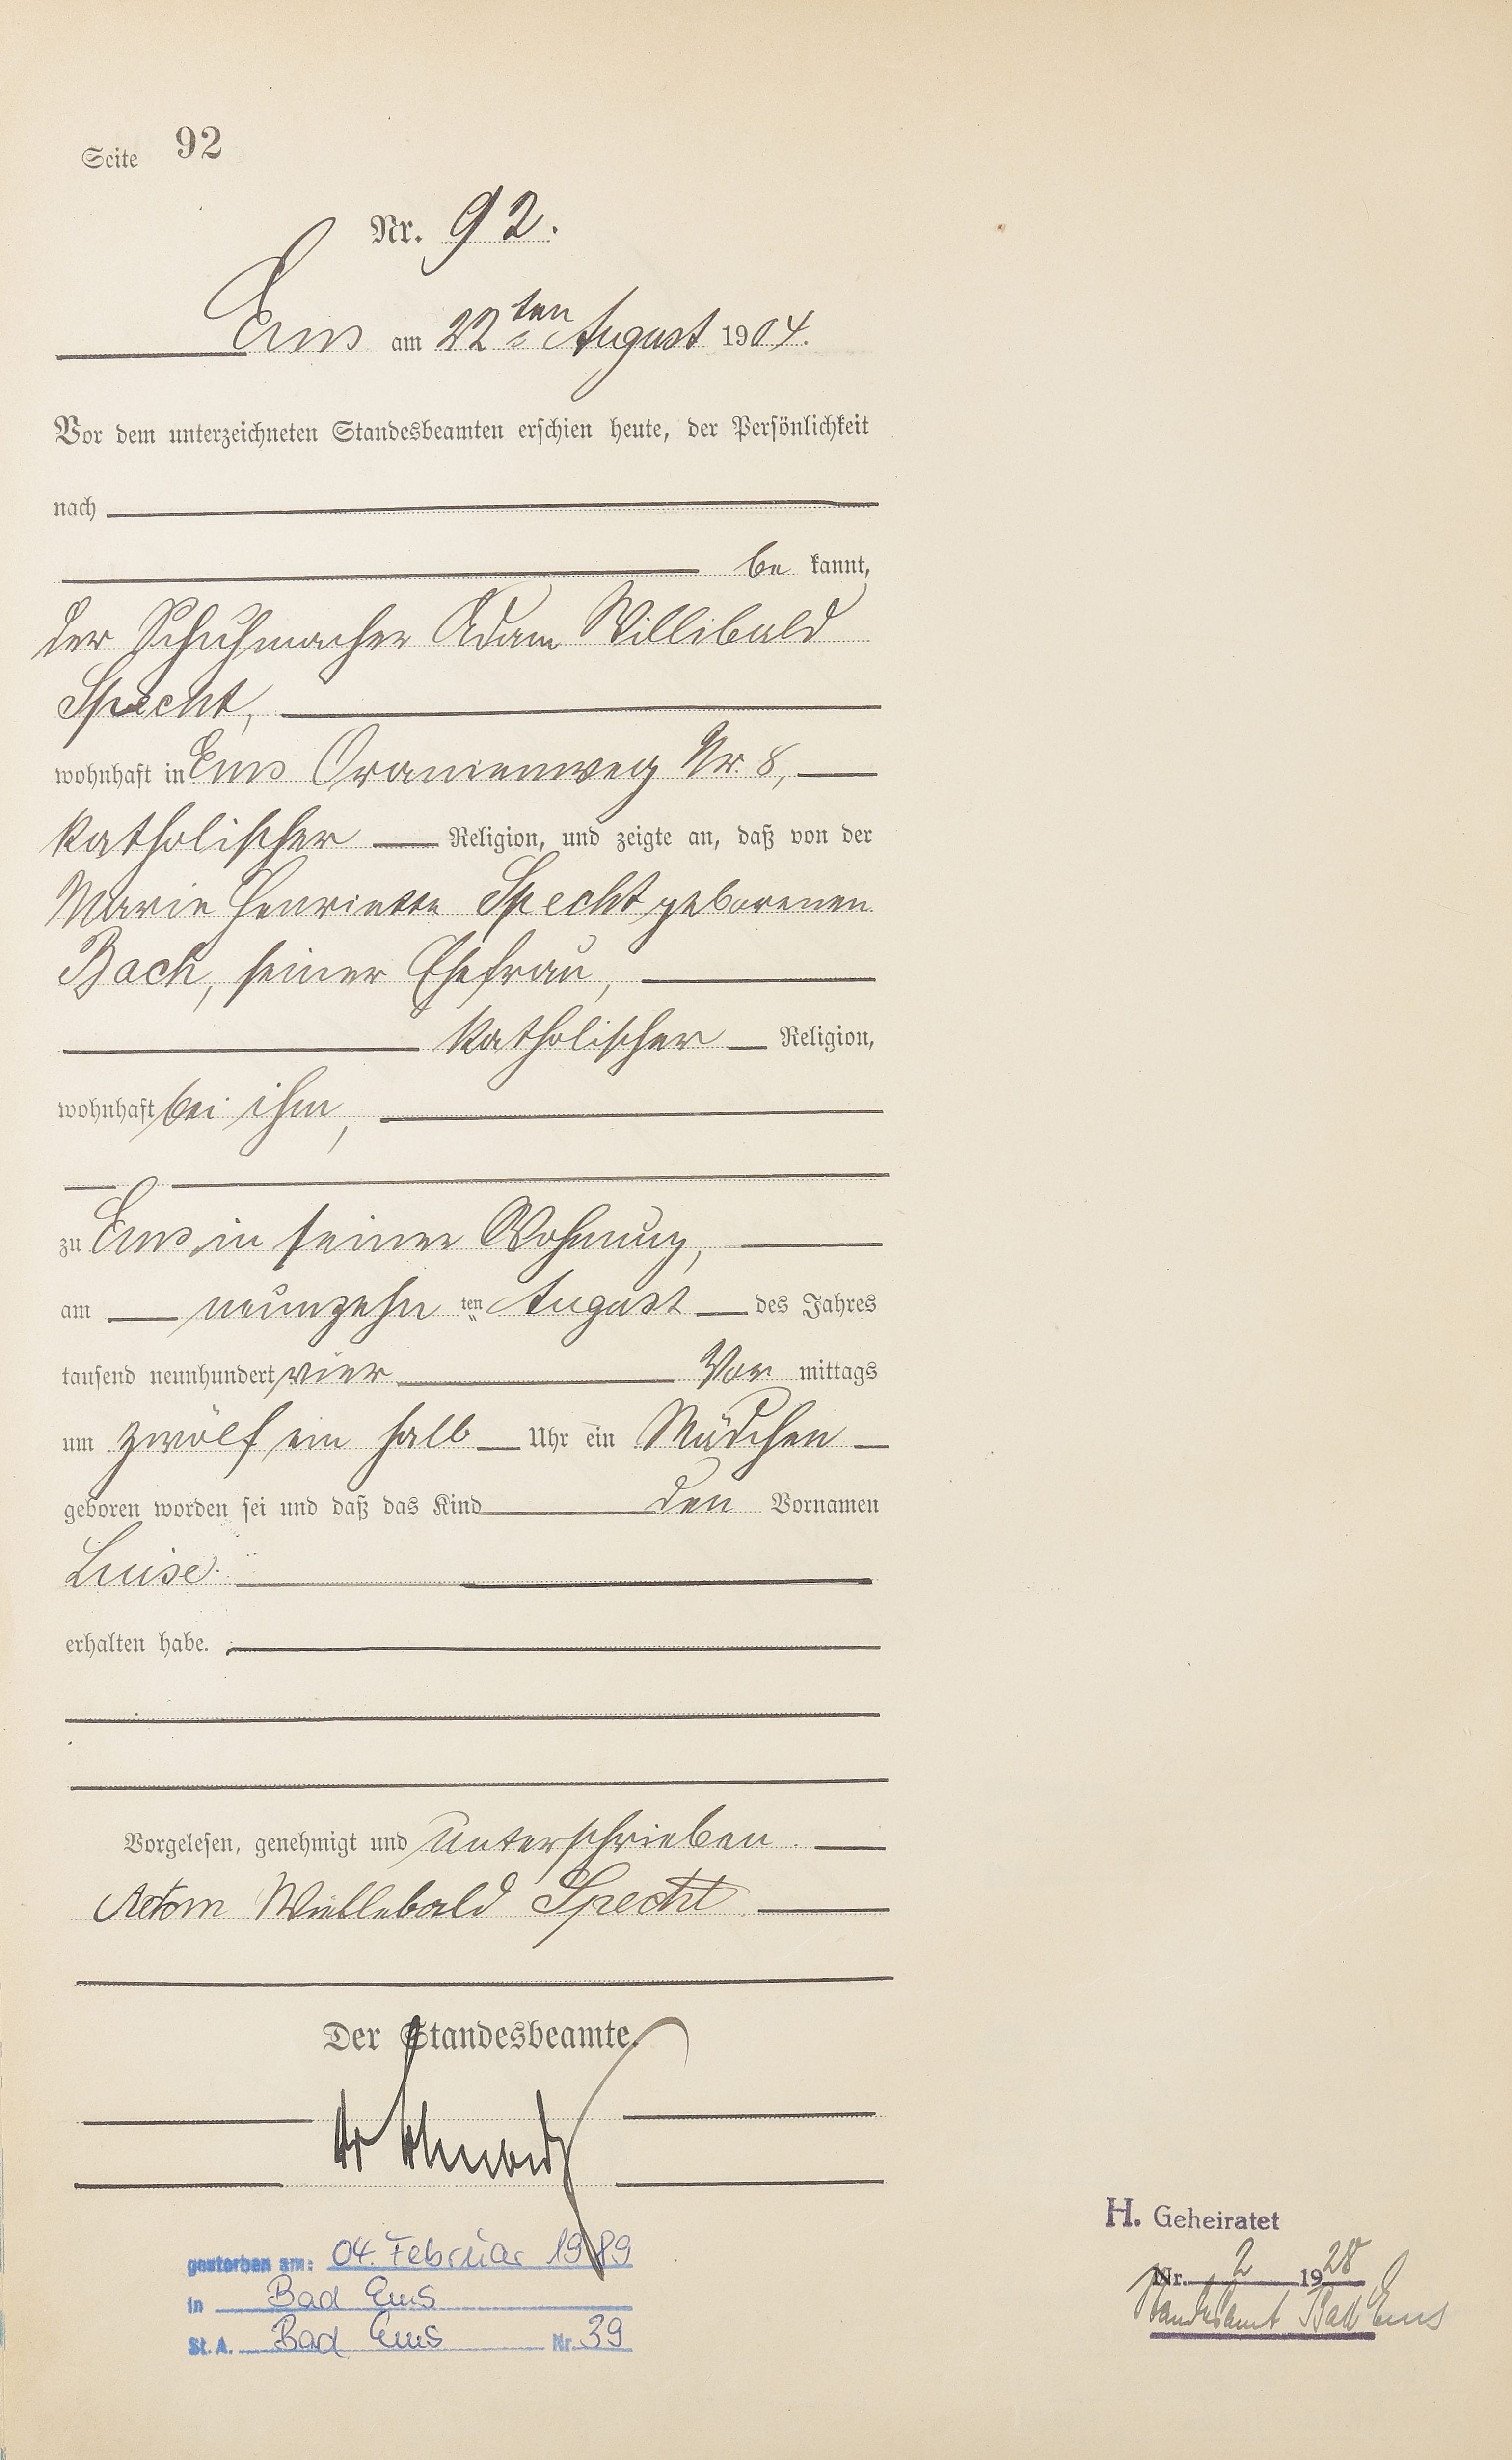 Seite 92
Nr. 92.
Ems am 22ten August 1904.
Vor dem unterzeichneten Standesbeamten erschien heute, der Persönlichkeit
nach
be kannt,
der Schuhmacher Adam Willibald
Specht,
wohnhaft in Ems Oranienweg Nr. 8,
katholischer Religion, und zeigte an, daß von der
Marie Henriette Specht geborenen
Bach, seiner Ehefrau,
katholischer Religion,
wohnhaft bei ihm,
zu Ems in seiner Wohnung,
am neunzehn ten August des Jahres
tausend neunhundert vier Vor mittags
um zwölf ein halb Uhr ein Mädchen
geboren worden sei und daß das Kind den Vornamen
Luise
erhalten habe.
Vorgelesen, genehmigt und unterschrieben.
Adam Willebald Specht
Der Standesbeamte.
gestorben am: 04. Februar 1989
in Bad Ems
St. A. Bad Ems Nr. 39
H. Geheiratet
Nr. 2 1928
Standesamt Bad Ems